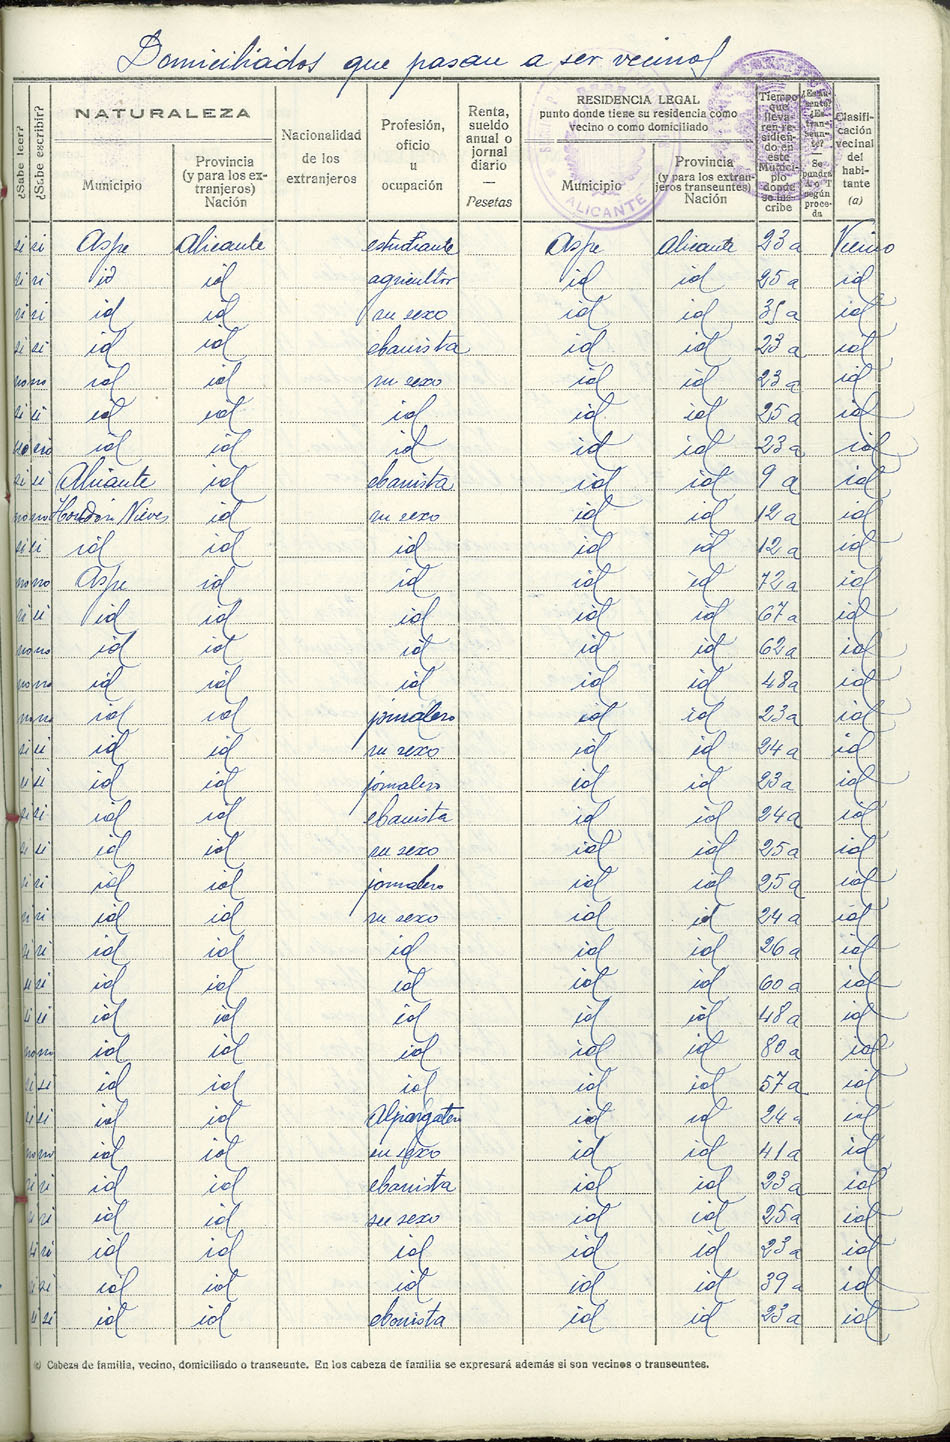 Domiciliados que pasan a ser vecinos
¿Sabe leer?
¿Sabe escribir?
NATURALEZA
Municipio
Provincia
(y para los ex-
tranjeros)
Nación
Nacionalidad
de los
extranjeros
Profesión,
oficio
u
ocupación
Renta,
sueldo
anual o
jornal
diario
—
Pesetas
RESIDENCIA LEGAL
punto donde tiene su residencia como
vecino o como domiciliado
Municipio
Provincia
(y para los extran-
jeros transeuntes)
Nación
Tiempo
que
lleva
ren re-
sidien-
do en
este
Munici-
pio
donde
se ins-
cribe
Clasifi-
cación
vecinal
del
habi-
tante
(a)
ALICANTE
si si Aspe Alicante estudiante Aspe Alicante 23 a Vecino
si si id id agricultor id id 25 a id
si si id id su sexo id id 35 a id
si si id id ebanista id id 23 a id
no no id id su sexo id id 23 a id
si si id id id id id 25 a id
no no id id id id id 23 a id
si si Alicante id ebanista id id 9 a id
no no Hondón Nieves id su sexo id id 12 a id
si si id id id id id 12 a id
no no Aspe id id id id 72 a id
si si id id id id id 67 a id
no no id id id id id 62 a id
no no id id id id id 48 a id
no no id id jornalero id id 23 a id
si si id id su sexo id id 24 a id
si si id id jornalero id id 23 a id
si si id id ebanista id id 24 a id
si si id id su sexo id id 25 a id
si si id id jornalero id id 25 a id
si si id id su sexo id id 24 a id
si si id id id id id 26 a id
si si id id id id id 60 a id
si si id id id id id 48 a id
no no id id id id id 80 a id
si si id id id id id 57 a id
si si id id Alpargatero id id 24 a id
no no id id su sexo id id 41 a id
si si id id ebanista id id 23 a id
si si id id su sexo id id 25 a id
si si id id id id id 23 a id
si si id id id id id 39 a id
si si id id ebanista id id 23 a id
(a) Cabeza de familia, vecino, domiciliado o transeunte. En los cabeza de familia se expresará además si son vecinos o transeuntes.